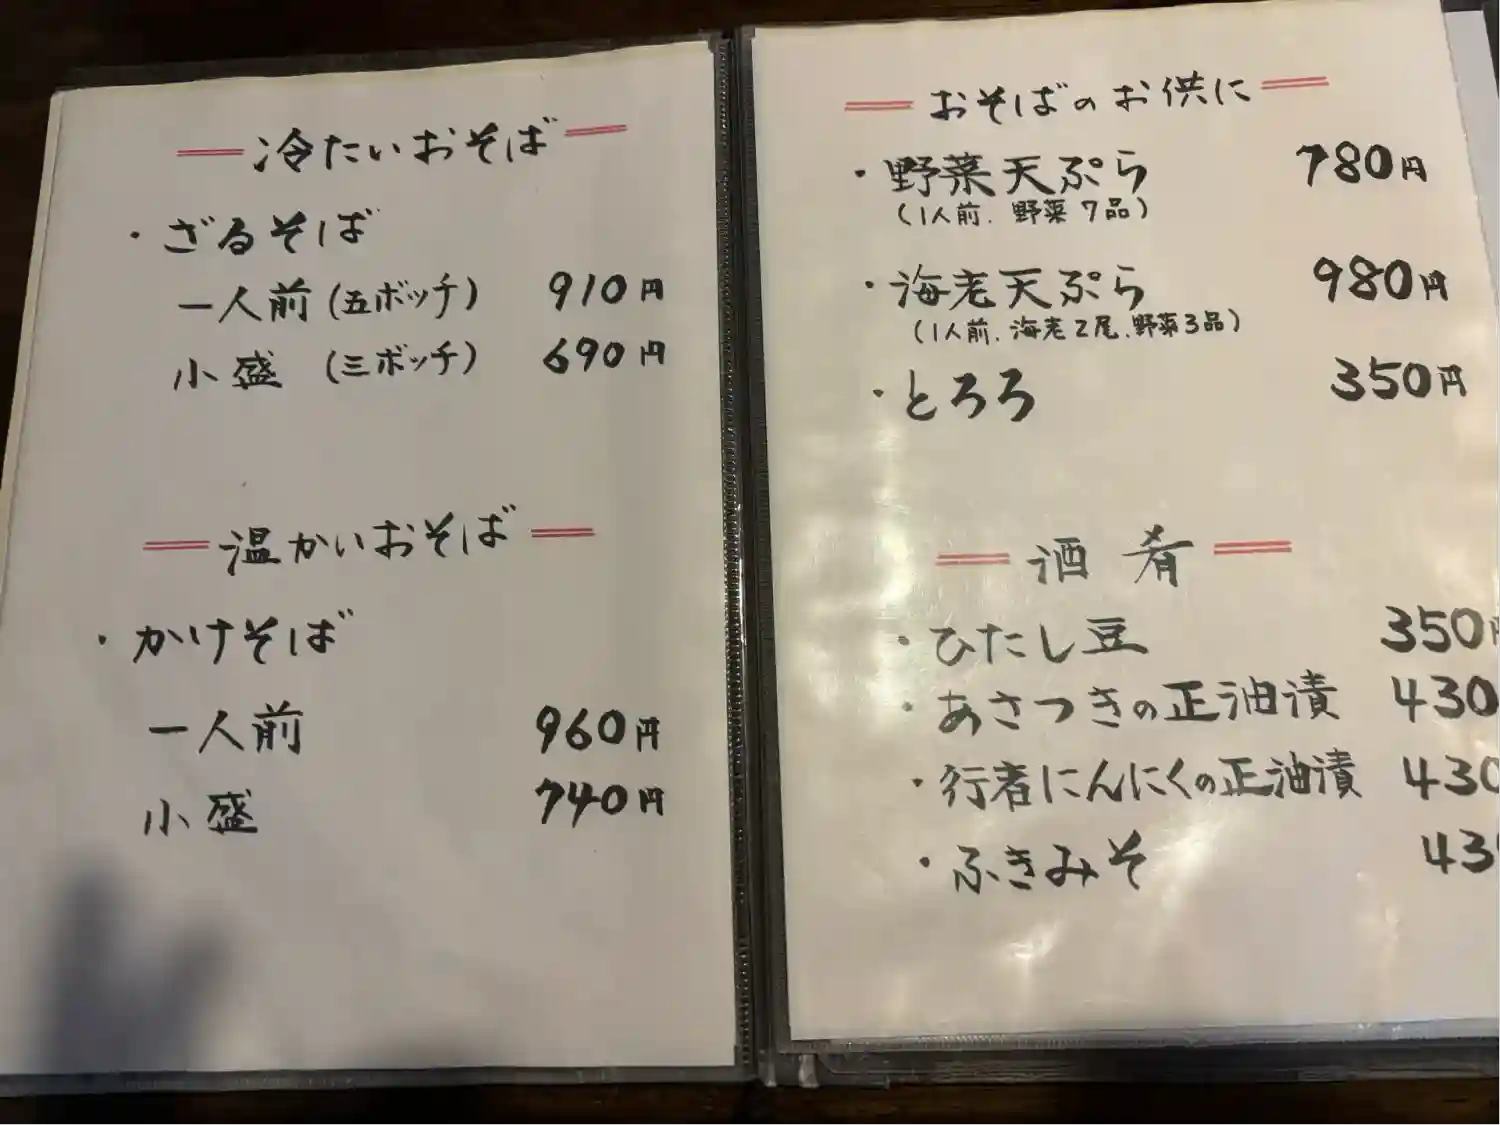 冷たいおそば
・ざるそば
一人前(五ボッチ) 910円
小盛 (三ボッチ) 690円
温かいおそば
・かけそば
一人前 960円
小盛 740円
おそばのお供に
・野菜天ぷら 780円
(1人前.野菜7品)
・海老天ぷら 980円
(1人前.海老2尾.野菜3品)
・とろろ 350円
酒肴
・ひたし豆 350円
・あさつきの正油漬 430
・行者にんにくの正油漬 430
・ふきみそ 43